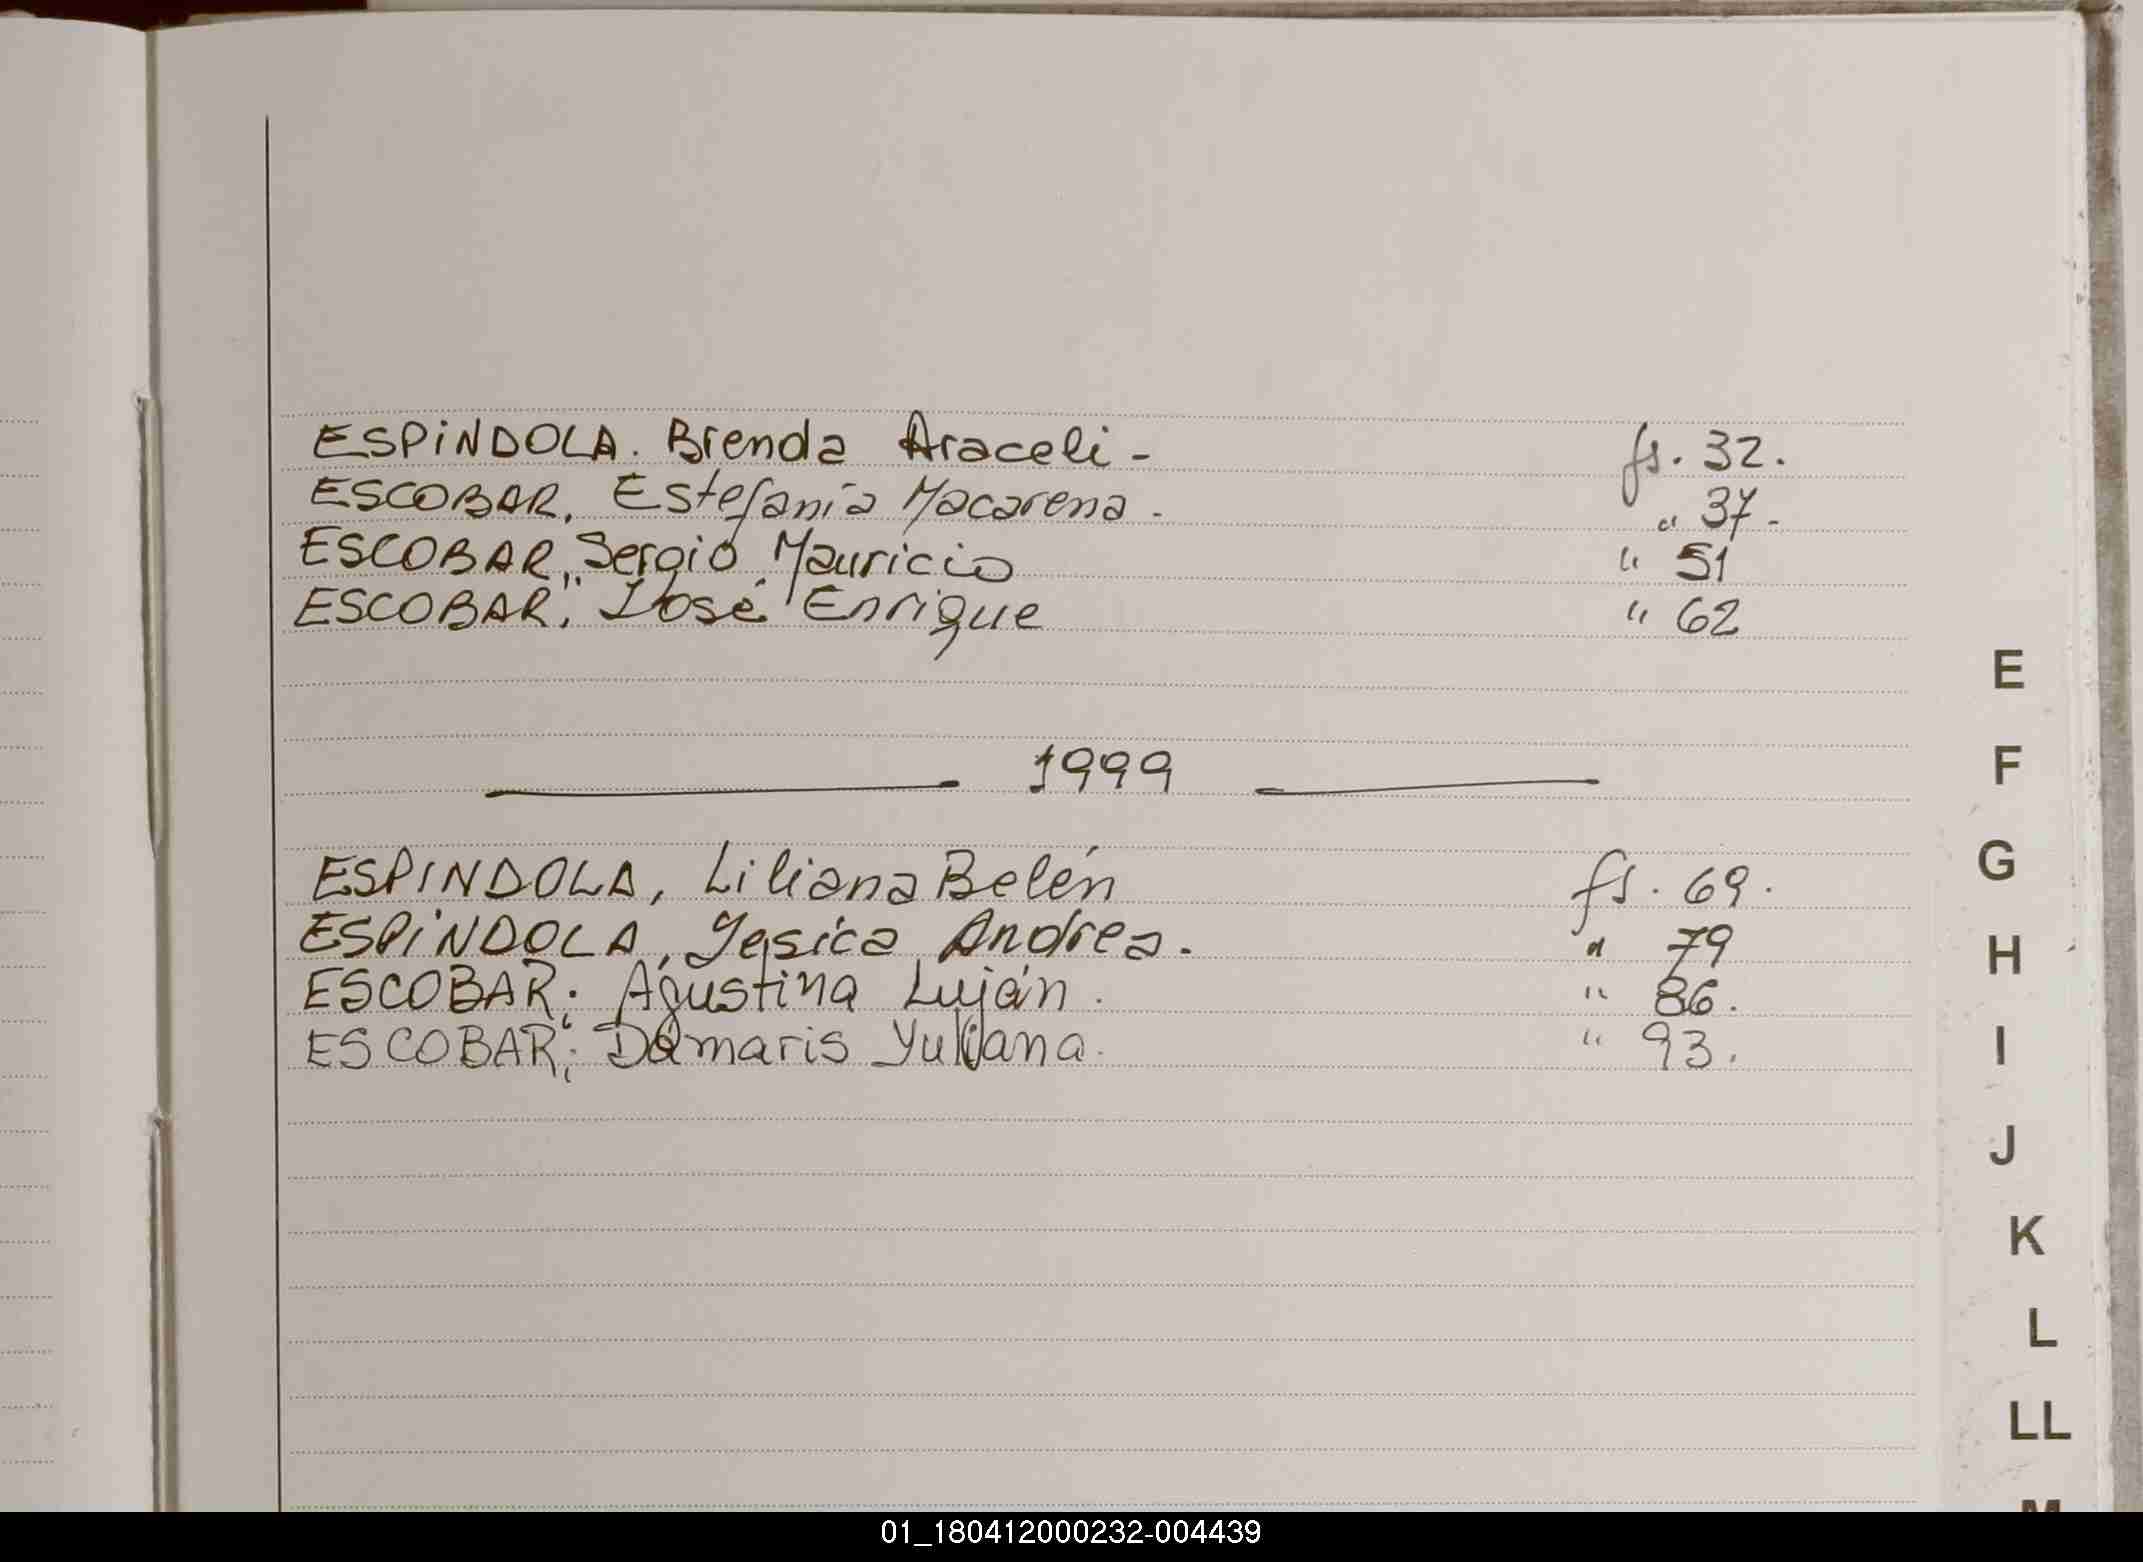 ESPINDOLA. Brenda Araceli - fs. 32.
ESCOBAR, Estefanía Macarena. " 37.
ESCOBAR, Sergio Mauricio " 51
ESCOBAR, José Enrique " 62
1999
ESPINDOLA, Liliana Belén fs. 69.
ESPINDOLA, Yesica Andrea. " 79
ESCOBAR; Agustina Luján. " 86.
ESCOBAR; Damaris Yuliana. " 93.
E
F
G
H
I
J
K
L
LL
M
01_180412000232-004439